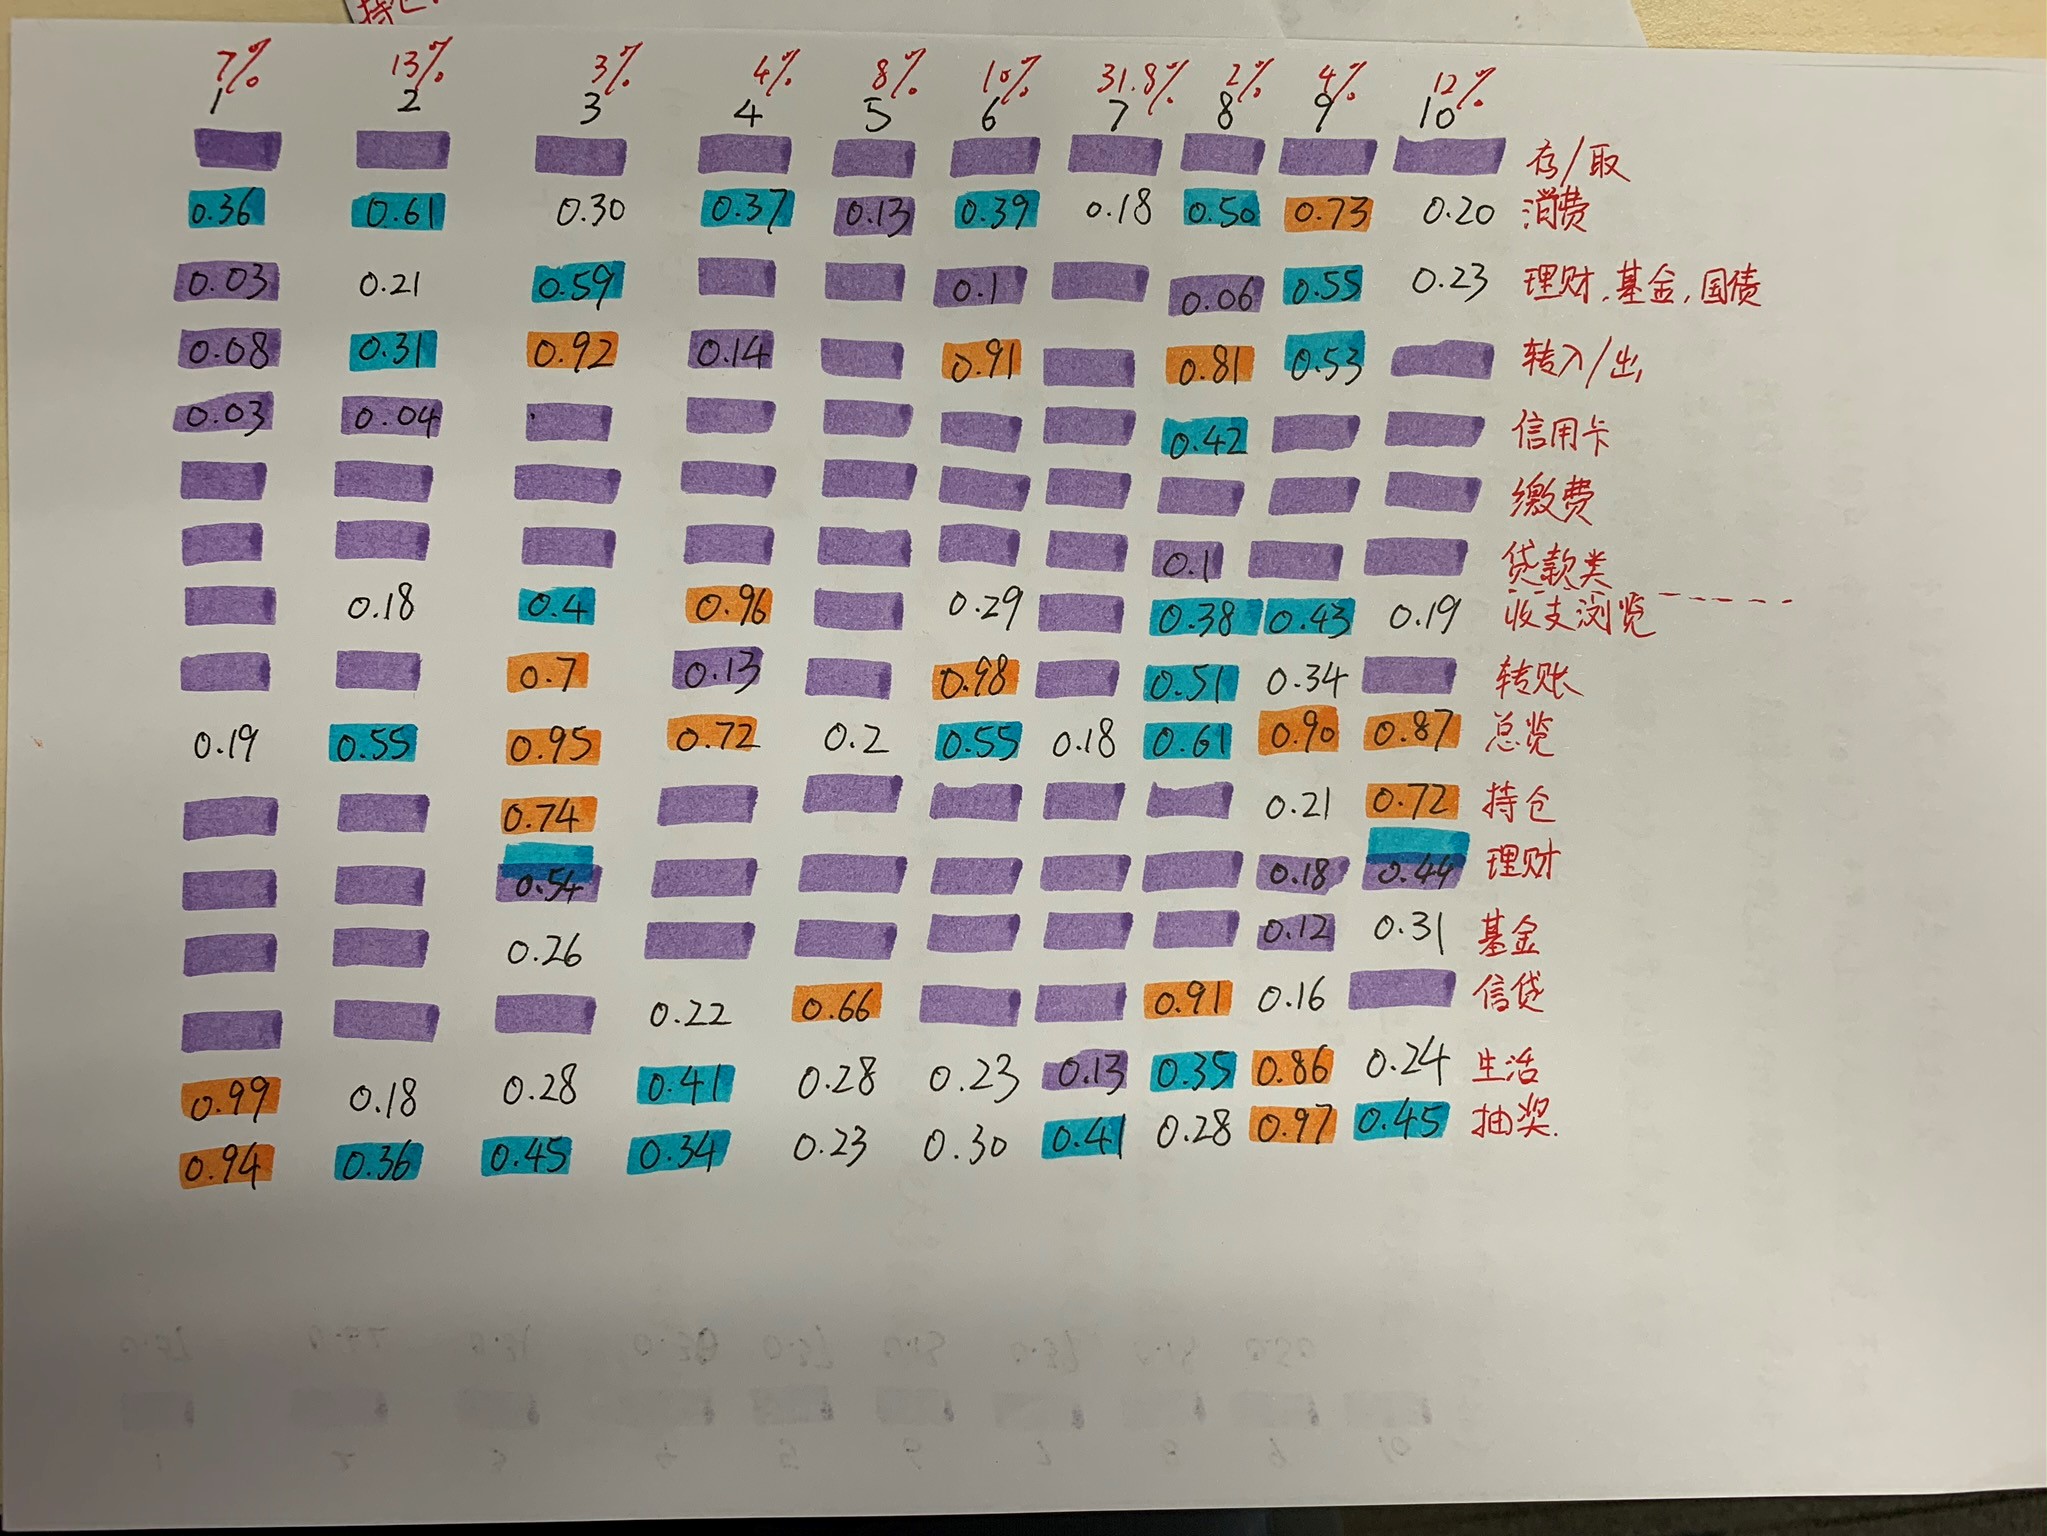 持仓.
7% 13% 3% 4% 8% 10% 31.8% 2% 4% 12%
1 2 3 4 5 6 7 8 9 10
存/取
0.36 0.61 0.30 0.37 0.13 0.39 0.18 0.50 0.73 0.20 消费
0.03 0.21 0.59 0.1 0.06 0.55 0.23 理财、基金、国债
0.08 0.31 0.92 0.14 0.91 0.81 0.53 转入/出
0.03 0.04 0.42 信用卡
缴费
0.1 贷款类
0.18 0.4 0.96 0.29 0.38 0.43 0.19 收支浏览
0.7 0.13 0.98 0.51 0.34 转账
0.19 0.55 0.95 0.72 0.2 0.55 0.18 0.61 0.90 0.87 总览
0.74 0.21 0.72 持仓
0.54 0.18 0.44 理财
0.26 0.12 0.31 基金
0.22 0.66 0.91 0.16 信贷
0.99 0.18 0.28 0.41 0.28 0.23 0.13 0.35 0.86 0.24 生活
0.94 0.36 0.45 0.34 0.23 0.30 0.41 0.28 0.97 0.45 抽奖.